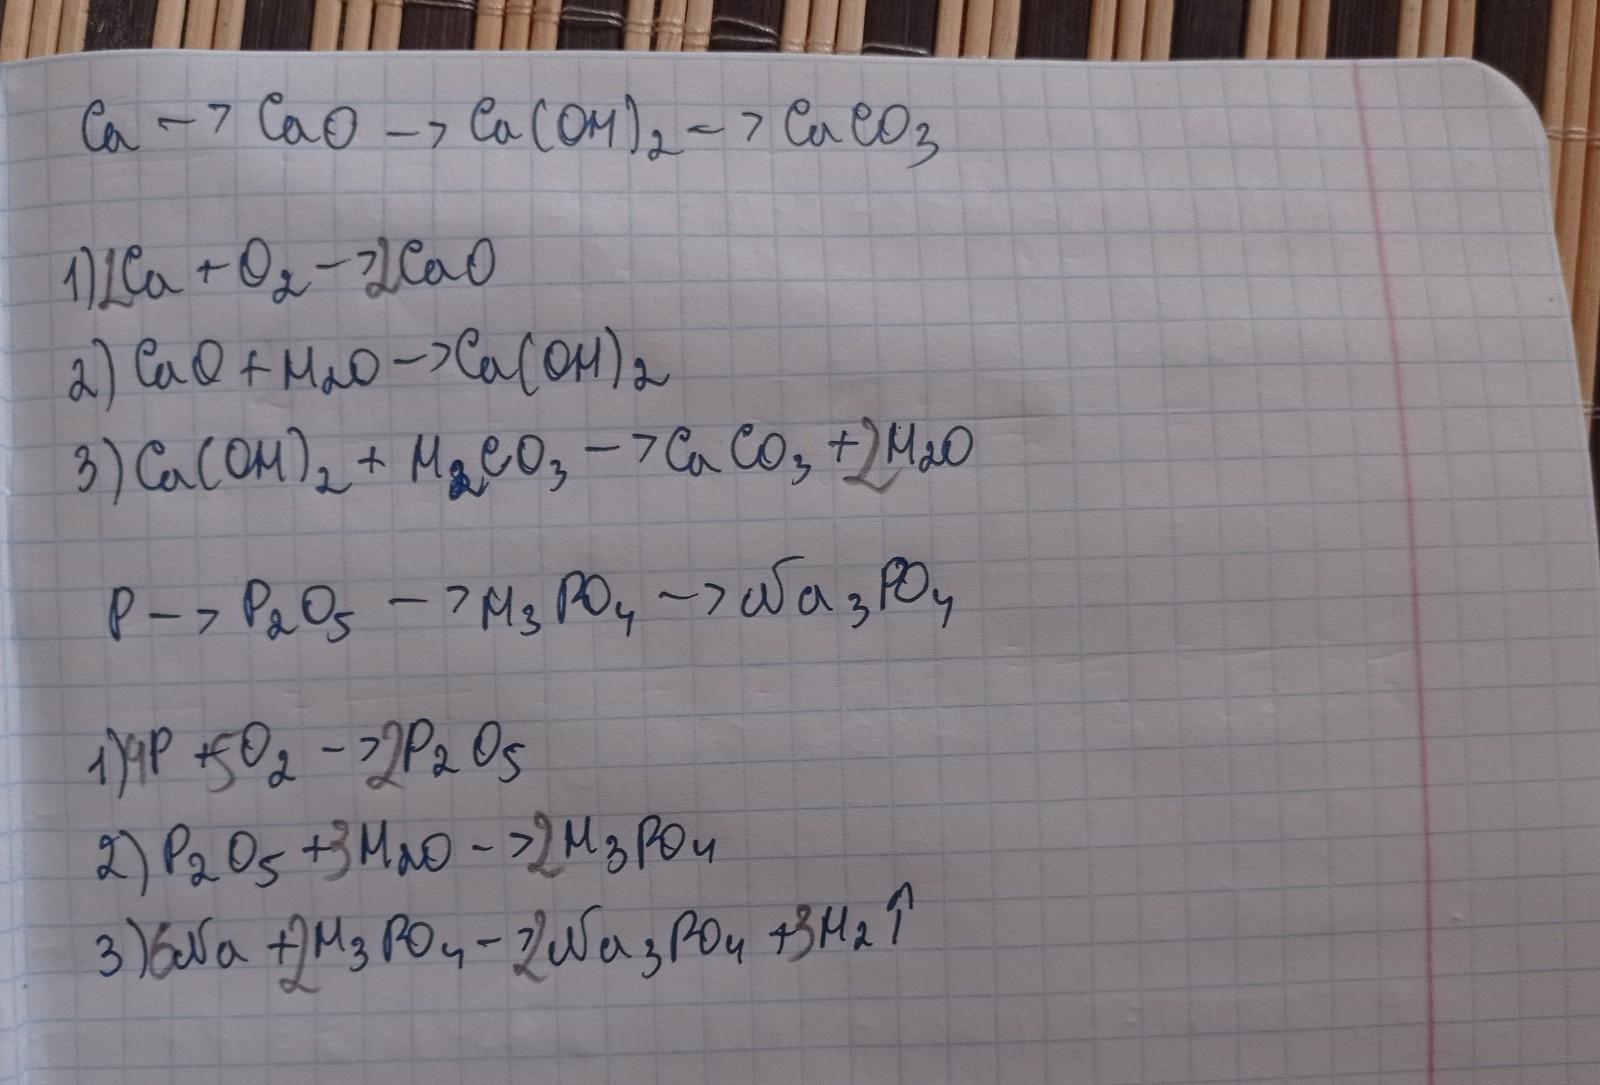 Ca -> CaO -> Ca(OH)2 -> CaCO3
1) 2Ca + O2 -> 2CaO
2) CaO + H2O -> Ca(OH)2
3) Ca(OH)2 + H2CO3 -> CaCO3 + 2H2O
P -> P2O5 -> H3PO4 -> Na3PO4
1) 4P + 5O2 -> 2P2O5
2) P2O5 + 3H2O -> 2H3PO4
3) 6Na + 2H3PO4 -> 2Na3PO4 + 3H2↑